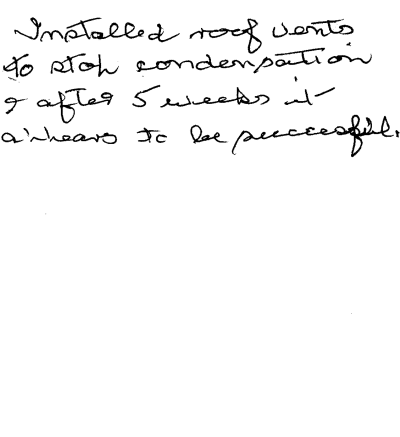 Installed roof vents
to stop condensation
& after 5 weeks it
appears to be successful.